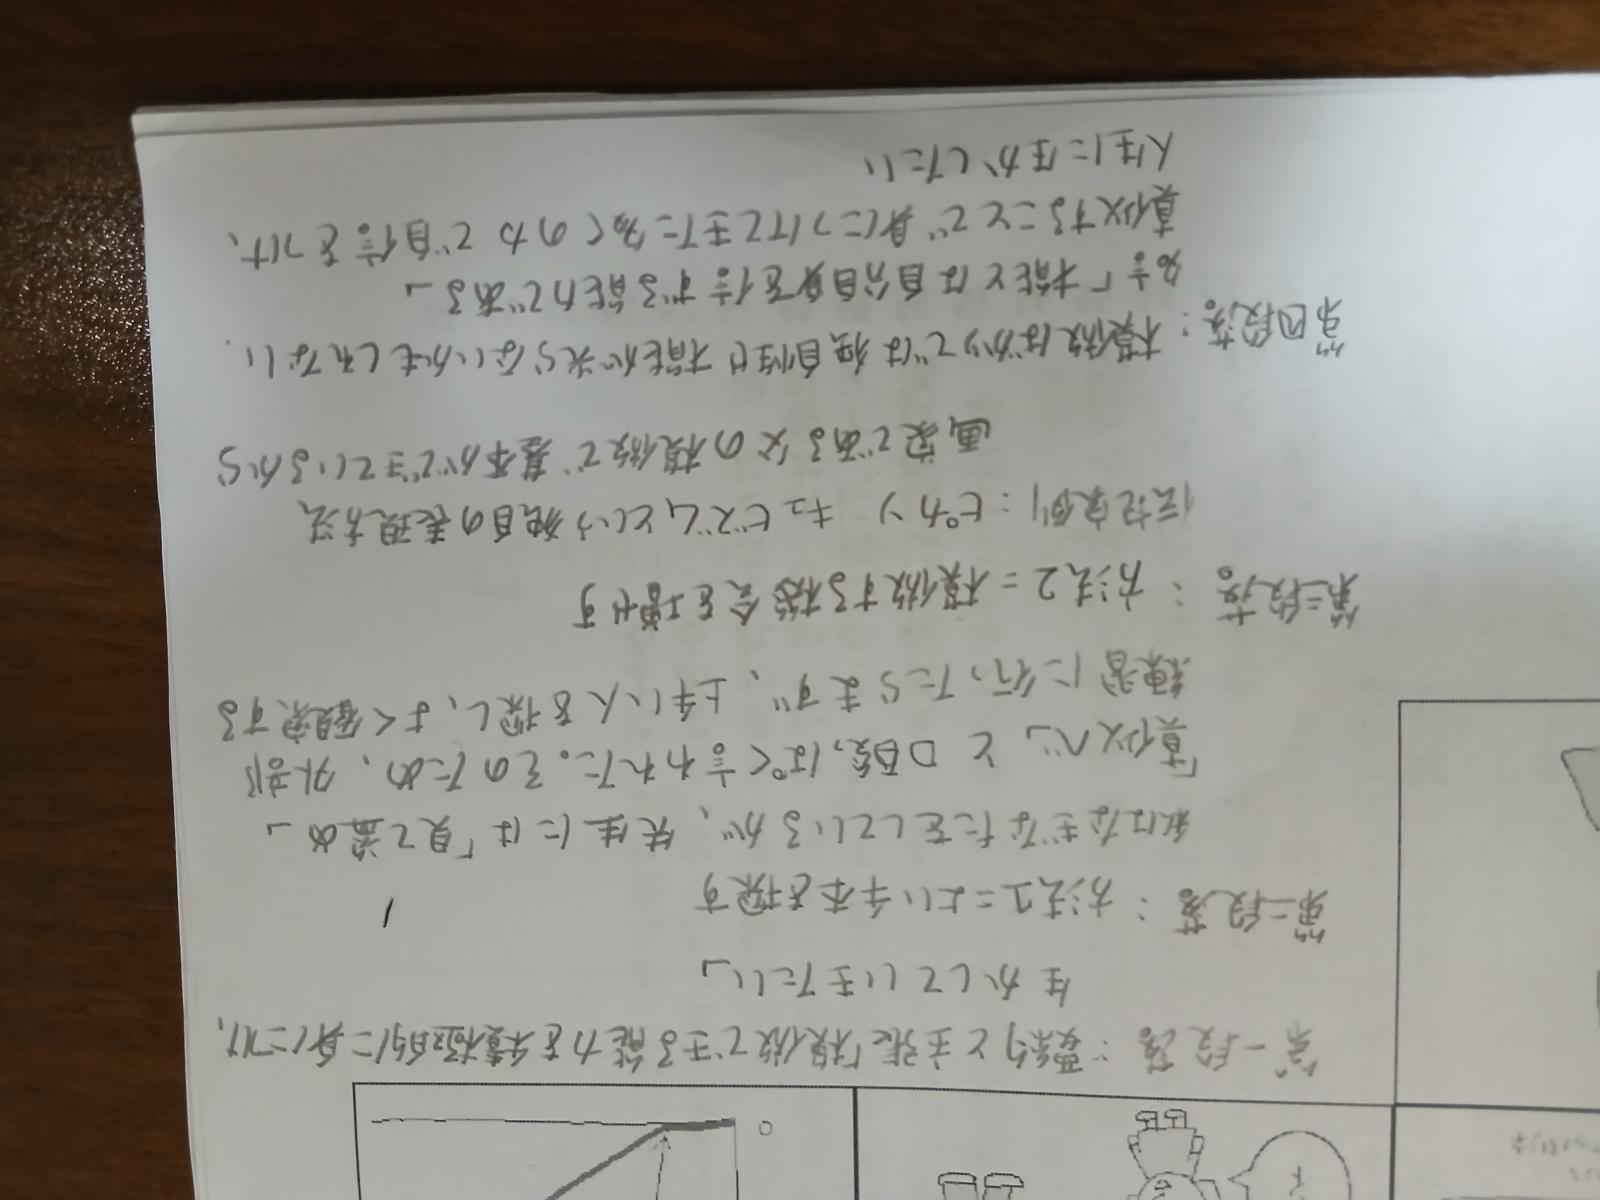 第一段落：要約と主張「模倣できる能力を積極的に身につけ、
生かしていきたい」
第二段落：方法1＝よい手本を探す
私はなぎなたをしているが、先生には「見て盗め」
「真似べ」と口酸っぱく言われた。そのため、外部
練習に行ったらまず、上手い人を探し、よく観察する
第三段落：方法2＝模倣する機会を増やす
伝記実例：ピカソ キュビズムという独自の表現方法
画家である父の模倣で基本ができているから
第四段落：模倣ばかりでは独自性や才能が光らないかもしれない。
名言「才能とは自分自身を信ずる能力である」
真似することで身につけてきた多くの力で自信をつけ、
人生に生かしたい